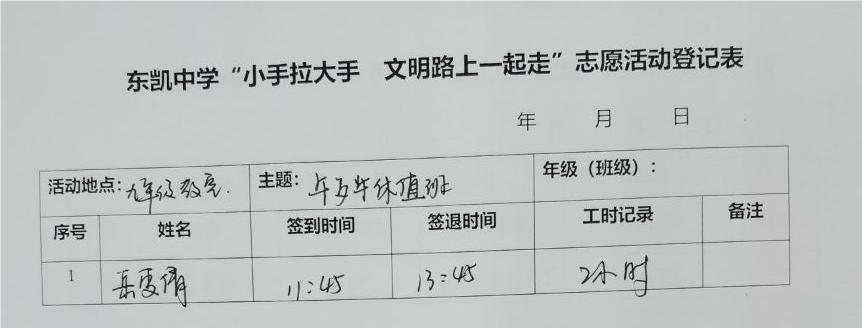 东凯中学“小手拉大手 文明路上一起走”志愿活动登记表
年 月 日
活动地点：九年级教室. 主题：午餐午休值班 年级（班级）：
序号 姓名 签到时间 签退时间 工时记录 备注
1 11:45 13:45 2小时